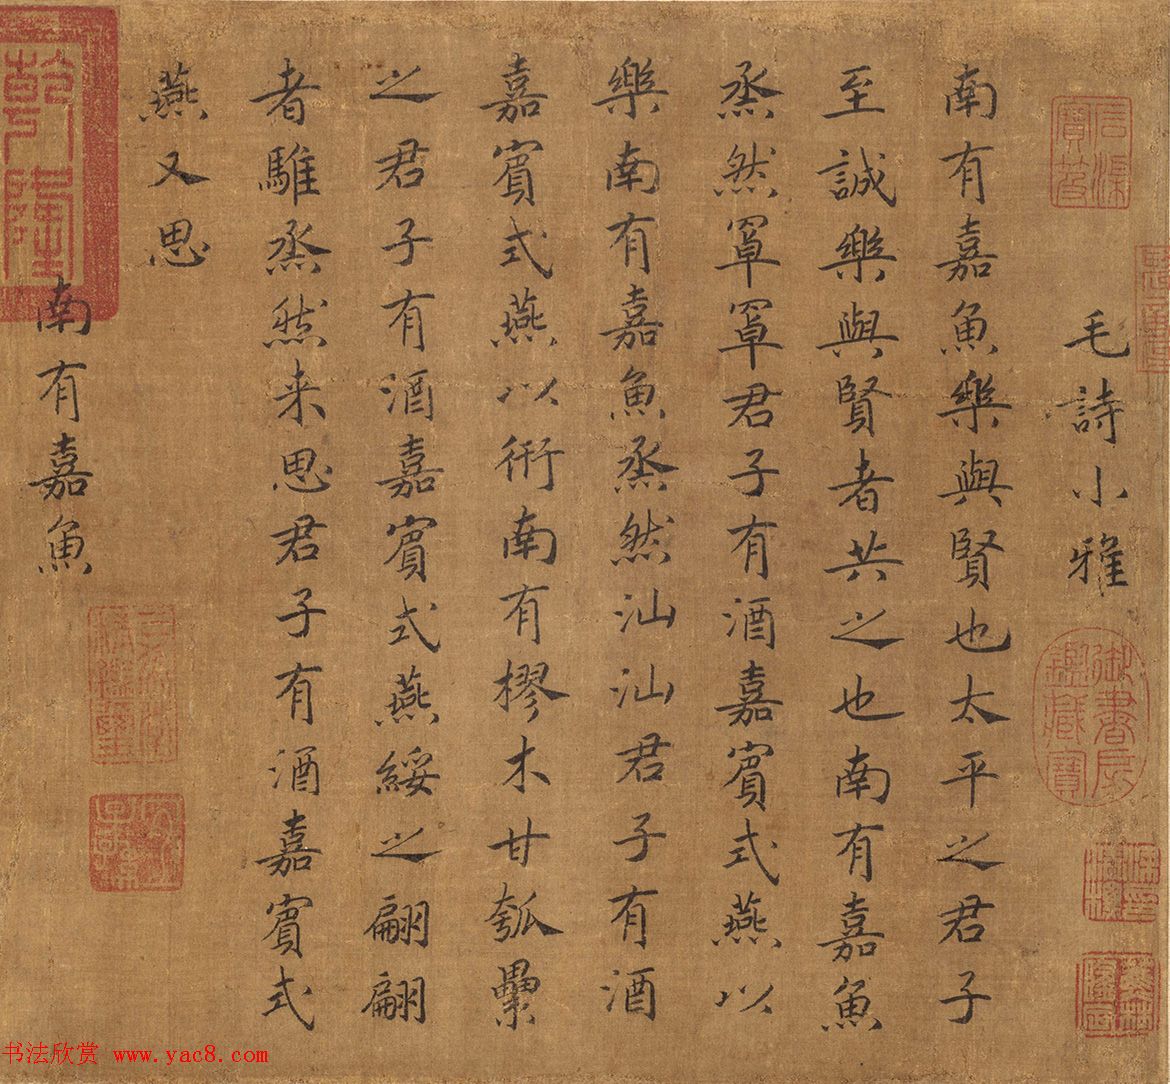 毛詩小雅
南有嘉魚樂與賢也太平之君子
至誠樂與賢者共之也南有嘉魚
烝然罩罩君子有酒嘉賓式燕以
樂南有嘉魚烝然汕汕君子有酒
嘉賓式燕以衎南有樛木甘瓠纍
之君子有酒嘉賓式燕綏之翩翩
者騅烝然来思君子有酒嘉賓式
燕又思
南有嘉魚
乾隆
御書房鑑藏寶
书法欣赏 www.yac8.com